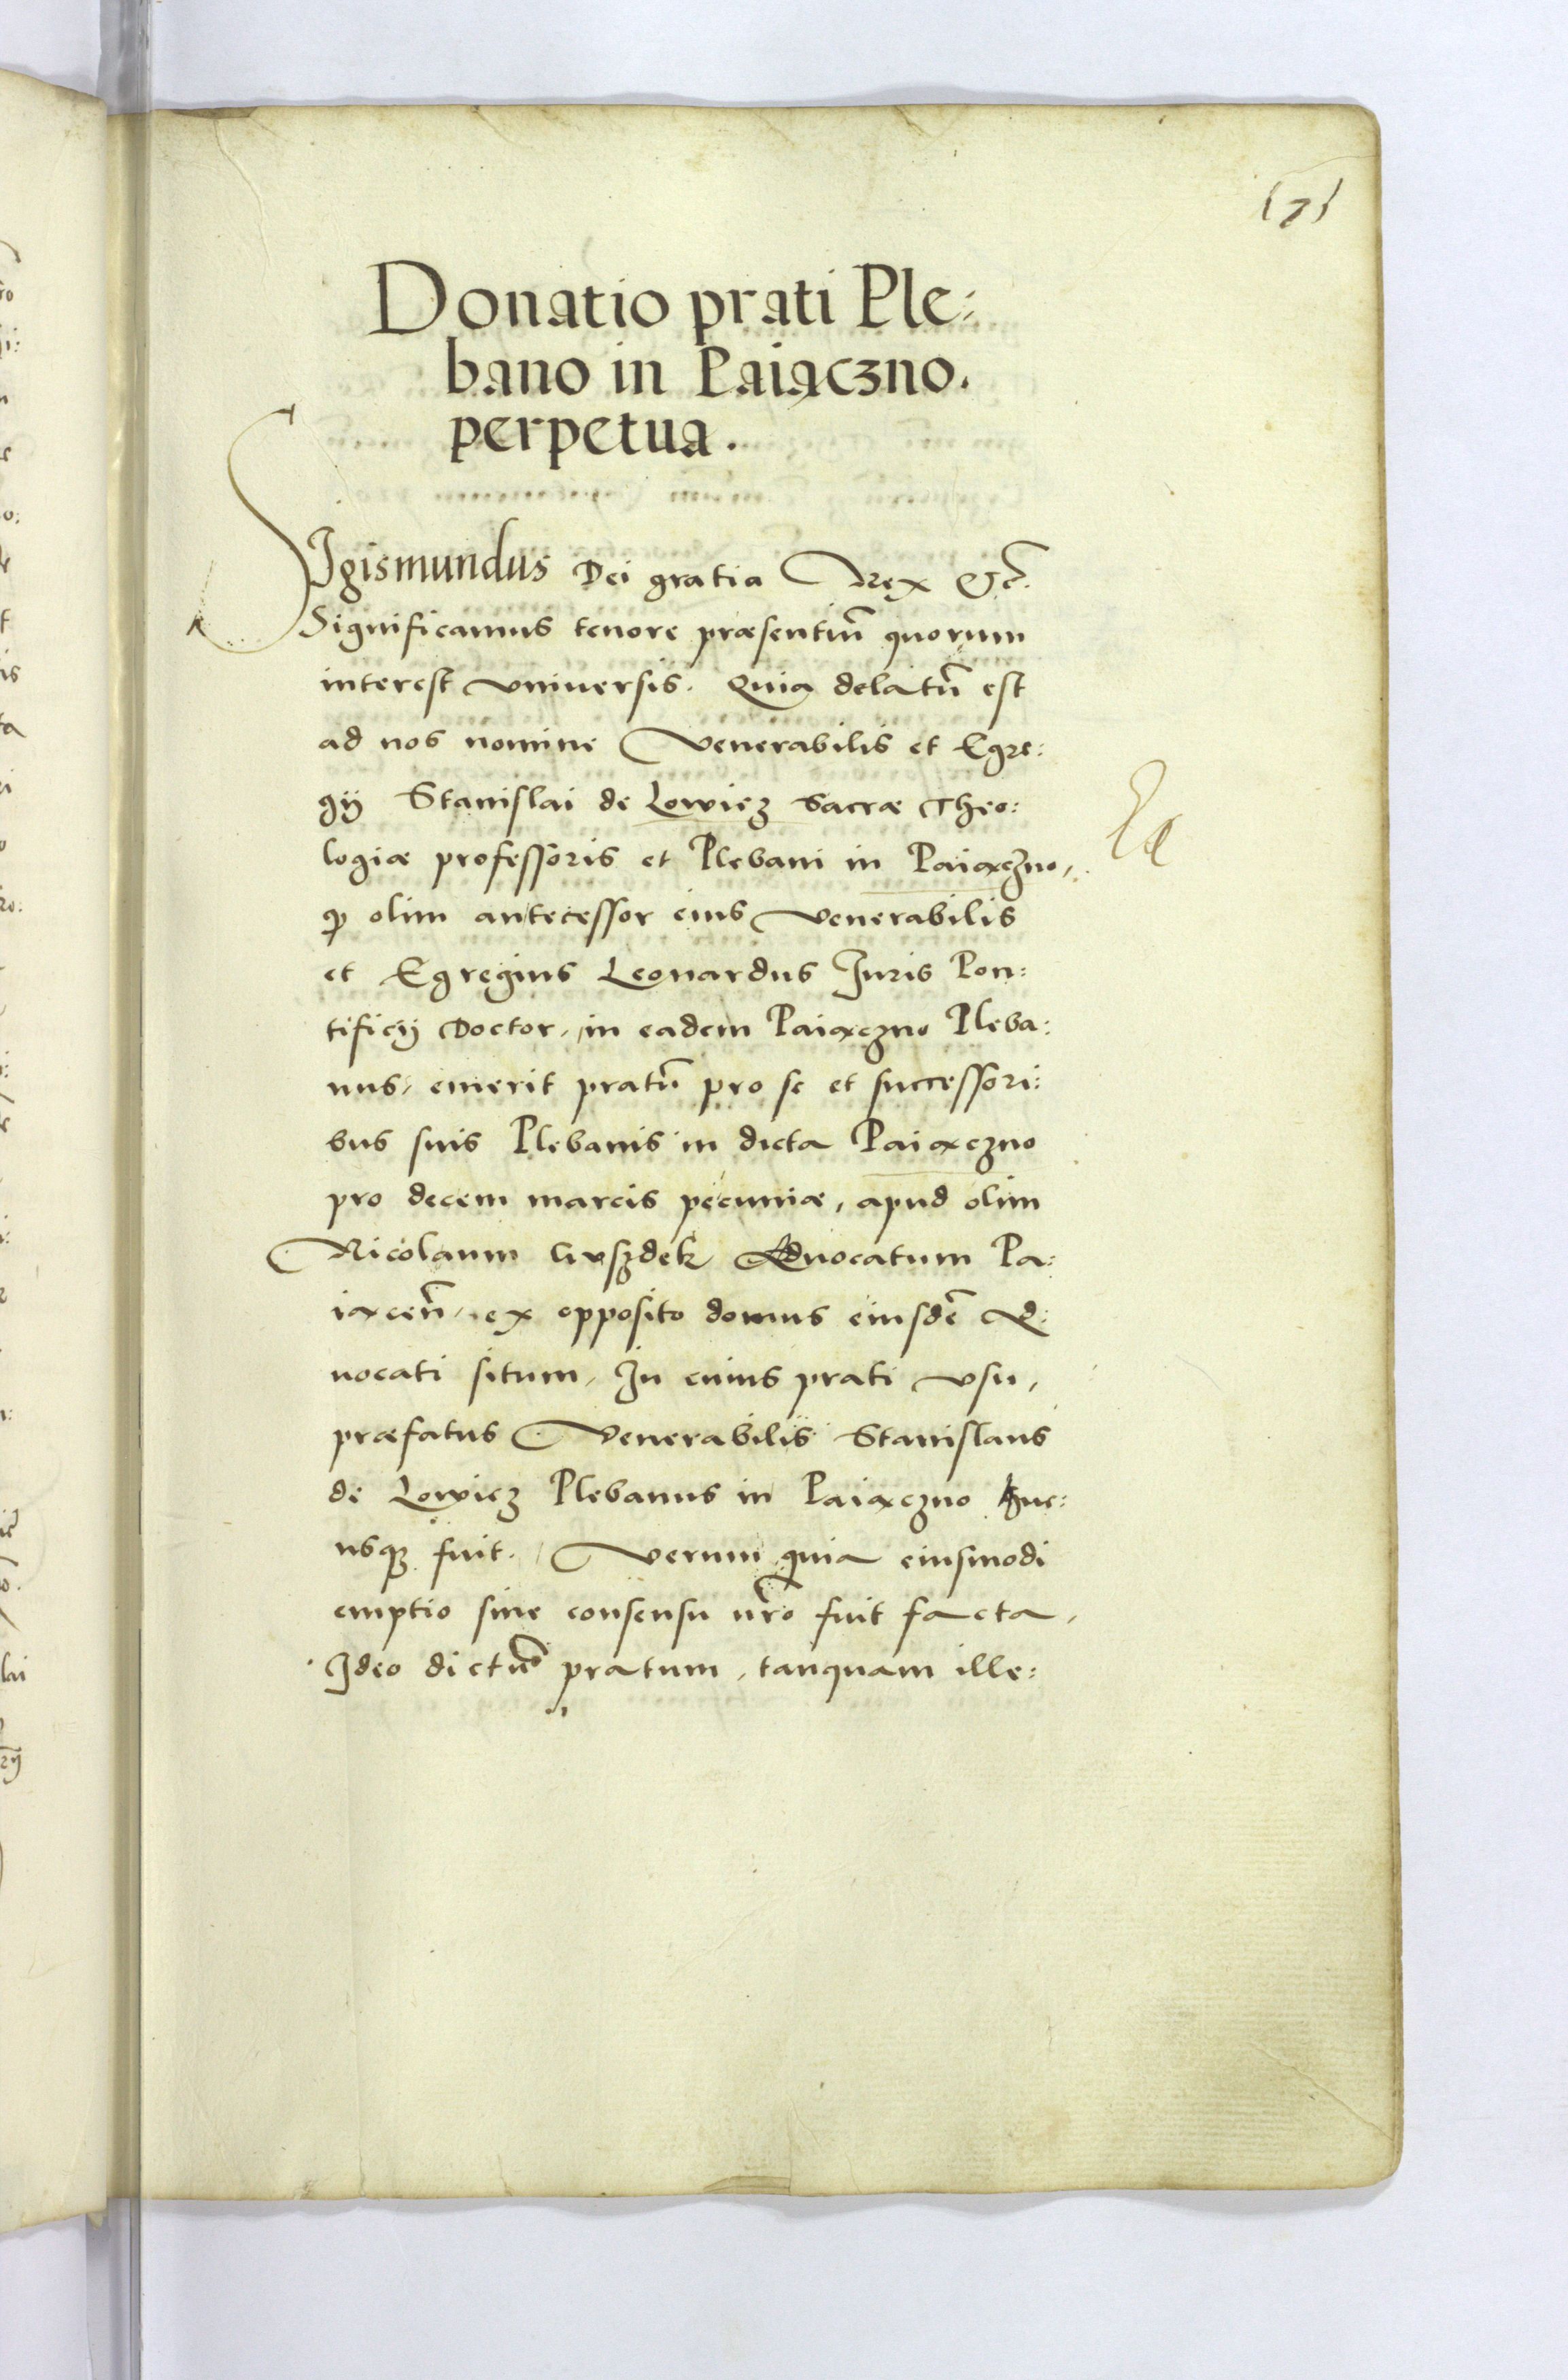 171
Donatio prati Ple:
bano in Paiączno.
perpetua.
SIgismundus Dei gratia Rex &c̃.
Significamus tenore præsentiũ quorum
interest vniuersis. Quia delatũ est
ad nos nomine Venerabilis et Egre:
gij Stanislai de Lowicz Sacræ Theo:
logiæ professoris et Plebani in Paiączno,
ꝙ olim antecessor eius Venerabilis
et Egregius Leonardus Juris Pon:
tificij Doctor, in eadem Paiączno Pleba:
nus, emerit pratũ pro se et successori:
bus suis Plebanis in dicta Paiączno
pro decem marcis pecuniæ, apud olim
Nicolaum Aduocatum Pa:
iącen̄, ex opposito domus eiusdẽ Ad:
uocati situm, In cuius prati vsu,
præfatus Venerabilis Stanislaus
de Lowicz Plebanus in Paiączno huc:
usqꝫ fuit. Verum quia eiusmodi
emptio sine consensu nr̃o fuit facta,
Ideo dictũ pratum, tanquam ille: